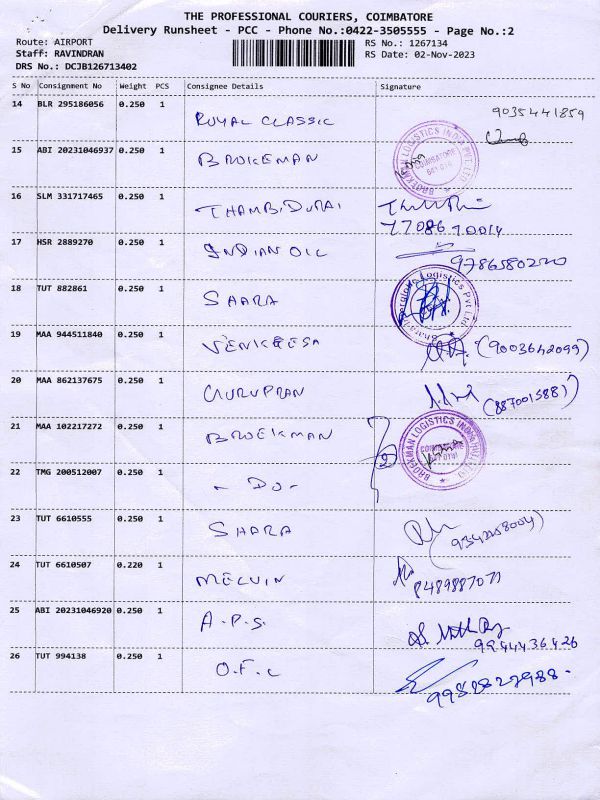 THE PROFESSIONAL COURIERS, COIMBATORE
Delivery Runsheet - PCC - Phone No.:0422-3505555 - Page No.:2
Route: AIRPORT RS No.: 1267134
Staff: RAVINDRAN RS Date: 02-Nov-2023
DRS No.: DCJB126713402
S No Consignment No Weight PCS Consignee Details Signature
14 BLR 295186056 0.250 1 ROYAL CLASSIC 9035441859
15 ABI 20231046937 0.250 1 BROKEMAN
BROEKMAN LOGISTICS INDIA PVT. LTD
COIMBATORE
641 014
16 SLM 331717465 0.250 1 THAMBIDURAI
77086 70014
17 HSR 2889270 0.250 1 INDIAN OIL 9786580220
18 TUT 882861 0.250 1 SAARA
Logistics Pvt Ltd
19 MAA 944511840 0.250 1 VENKEESA (9003642099)
20 MAA 862137675 0.250 1 GURUPRAN (887001588)
21 MAA 102217272 0.250 1 BROEKMAN
BROEKMAN LOGISTICS INDIA PVT. LTD
COIMBATORE
22 TMG 200512007 0.250 1 - DO -
23 TUT 6610555 0.250 1 SHARA
24 TUT 6610507 0.220 1 MELVIN 8489887071
25 ABI 20231046920 0.250 1 A.P.S.
9944436426
26 TUT 994138 0.250 1 O.F.C